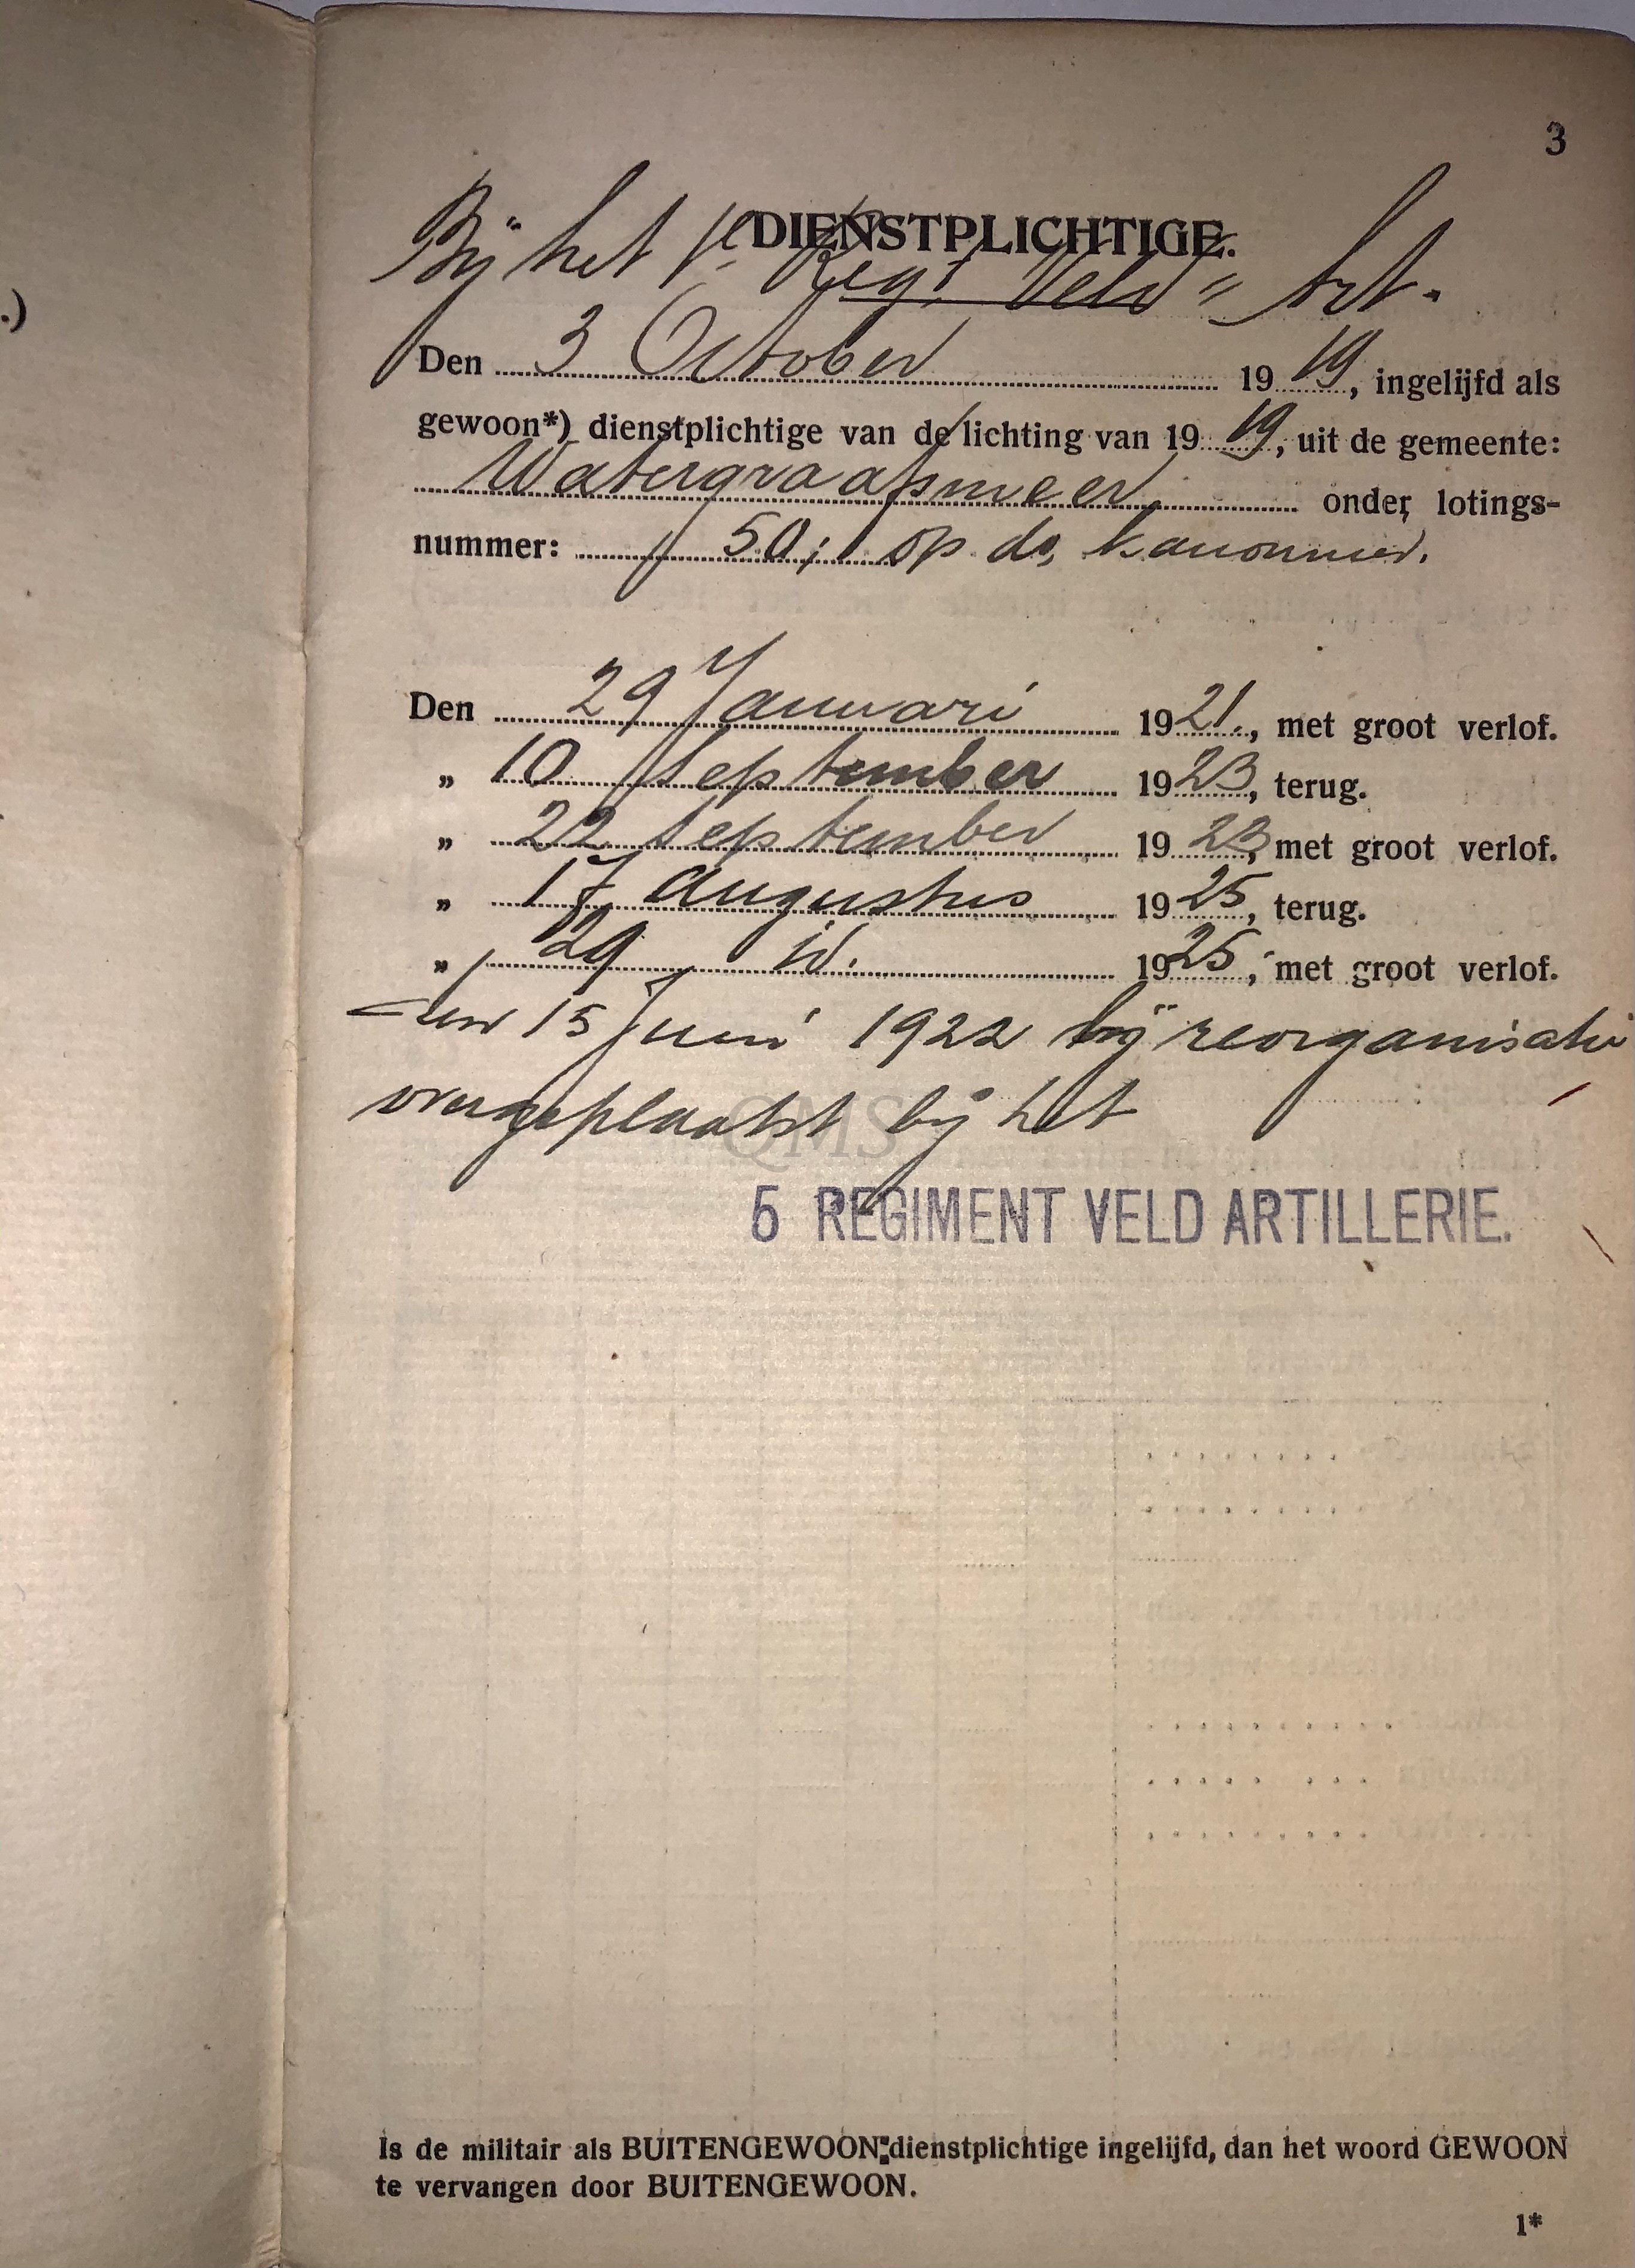 3
DIENSTPLICHTIGE.
Bij het 1e Regt Veld " Art.
Den 3 October 1919, ingelijfd als
gewoon*) dienstplichtige van de lichting van 1919, uit de gemeente:
Watergraafsmeer onder lotings-
nummer: 50; op do, kanonnier.
Den 29 Januari 1921., met groot verlof.
„ 10 September 1923, terug.
„ 22 September 1923, met groot verlof.
„ 17 Augustus 1925, terug.
„ 29 id. 1925, met groot verlof.
den 15 Juni 1922 bij reorganisatie
overgeplaatst bij het
QMS
5 REGIMENT VELD ARTILLERIE.
Is de militair als BUITENGEWOON dienstplichtige ingelijfd, dan het woord GEWOON
te vervangen door BUITENGEWOON.
1*
.)